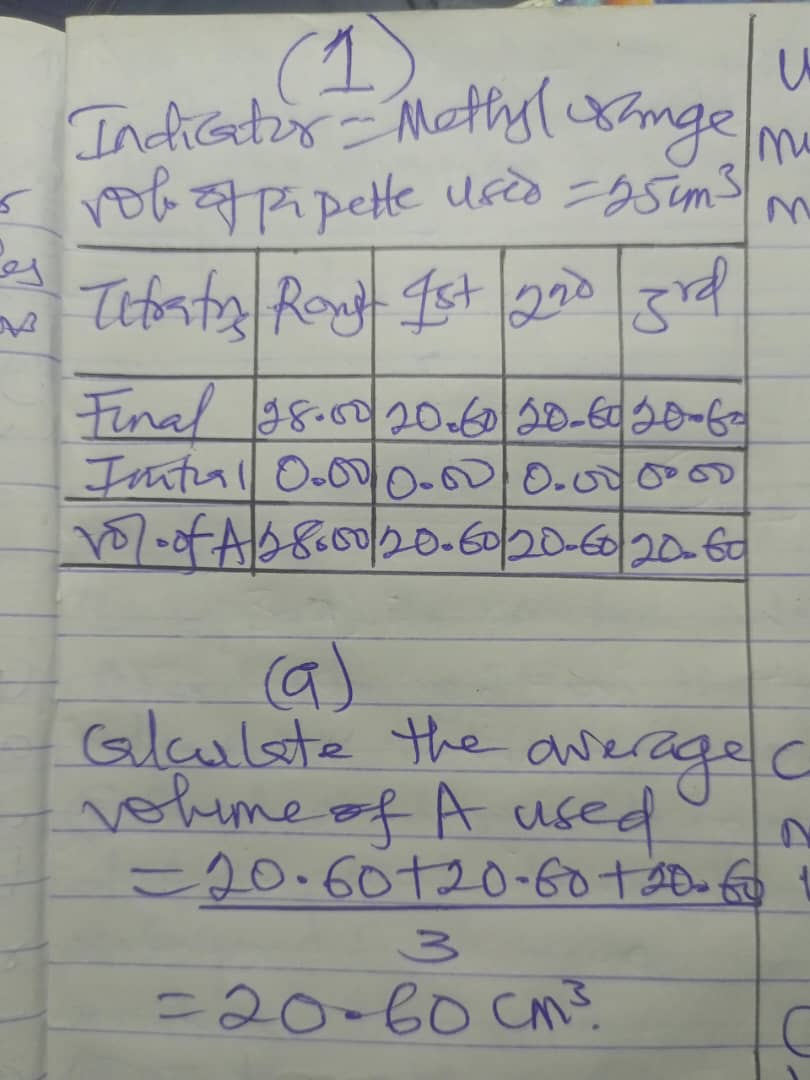 (1)
Indicator = Methyl orange
vol. of pipette used = 25cm³
Titratn | Rough | 1st | 2nd | 3rd
Final | 28.00 | 20.60 | 20.60 | 20.60
Initial | 0.00 | 0.00 | 0.00 | 0.00
vol. of A | 28.00 | 20.60 | 20.60 | 20.60
(a)
Calculate the average
volume of A used
= 20.60+20.60+20.60
3
= 20.60 cm³.